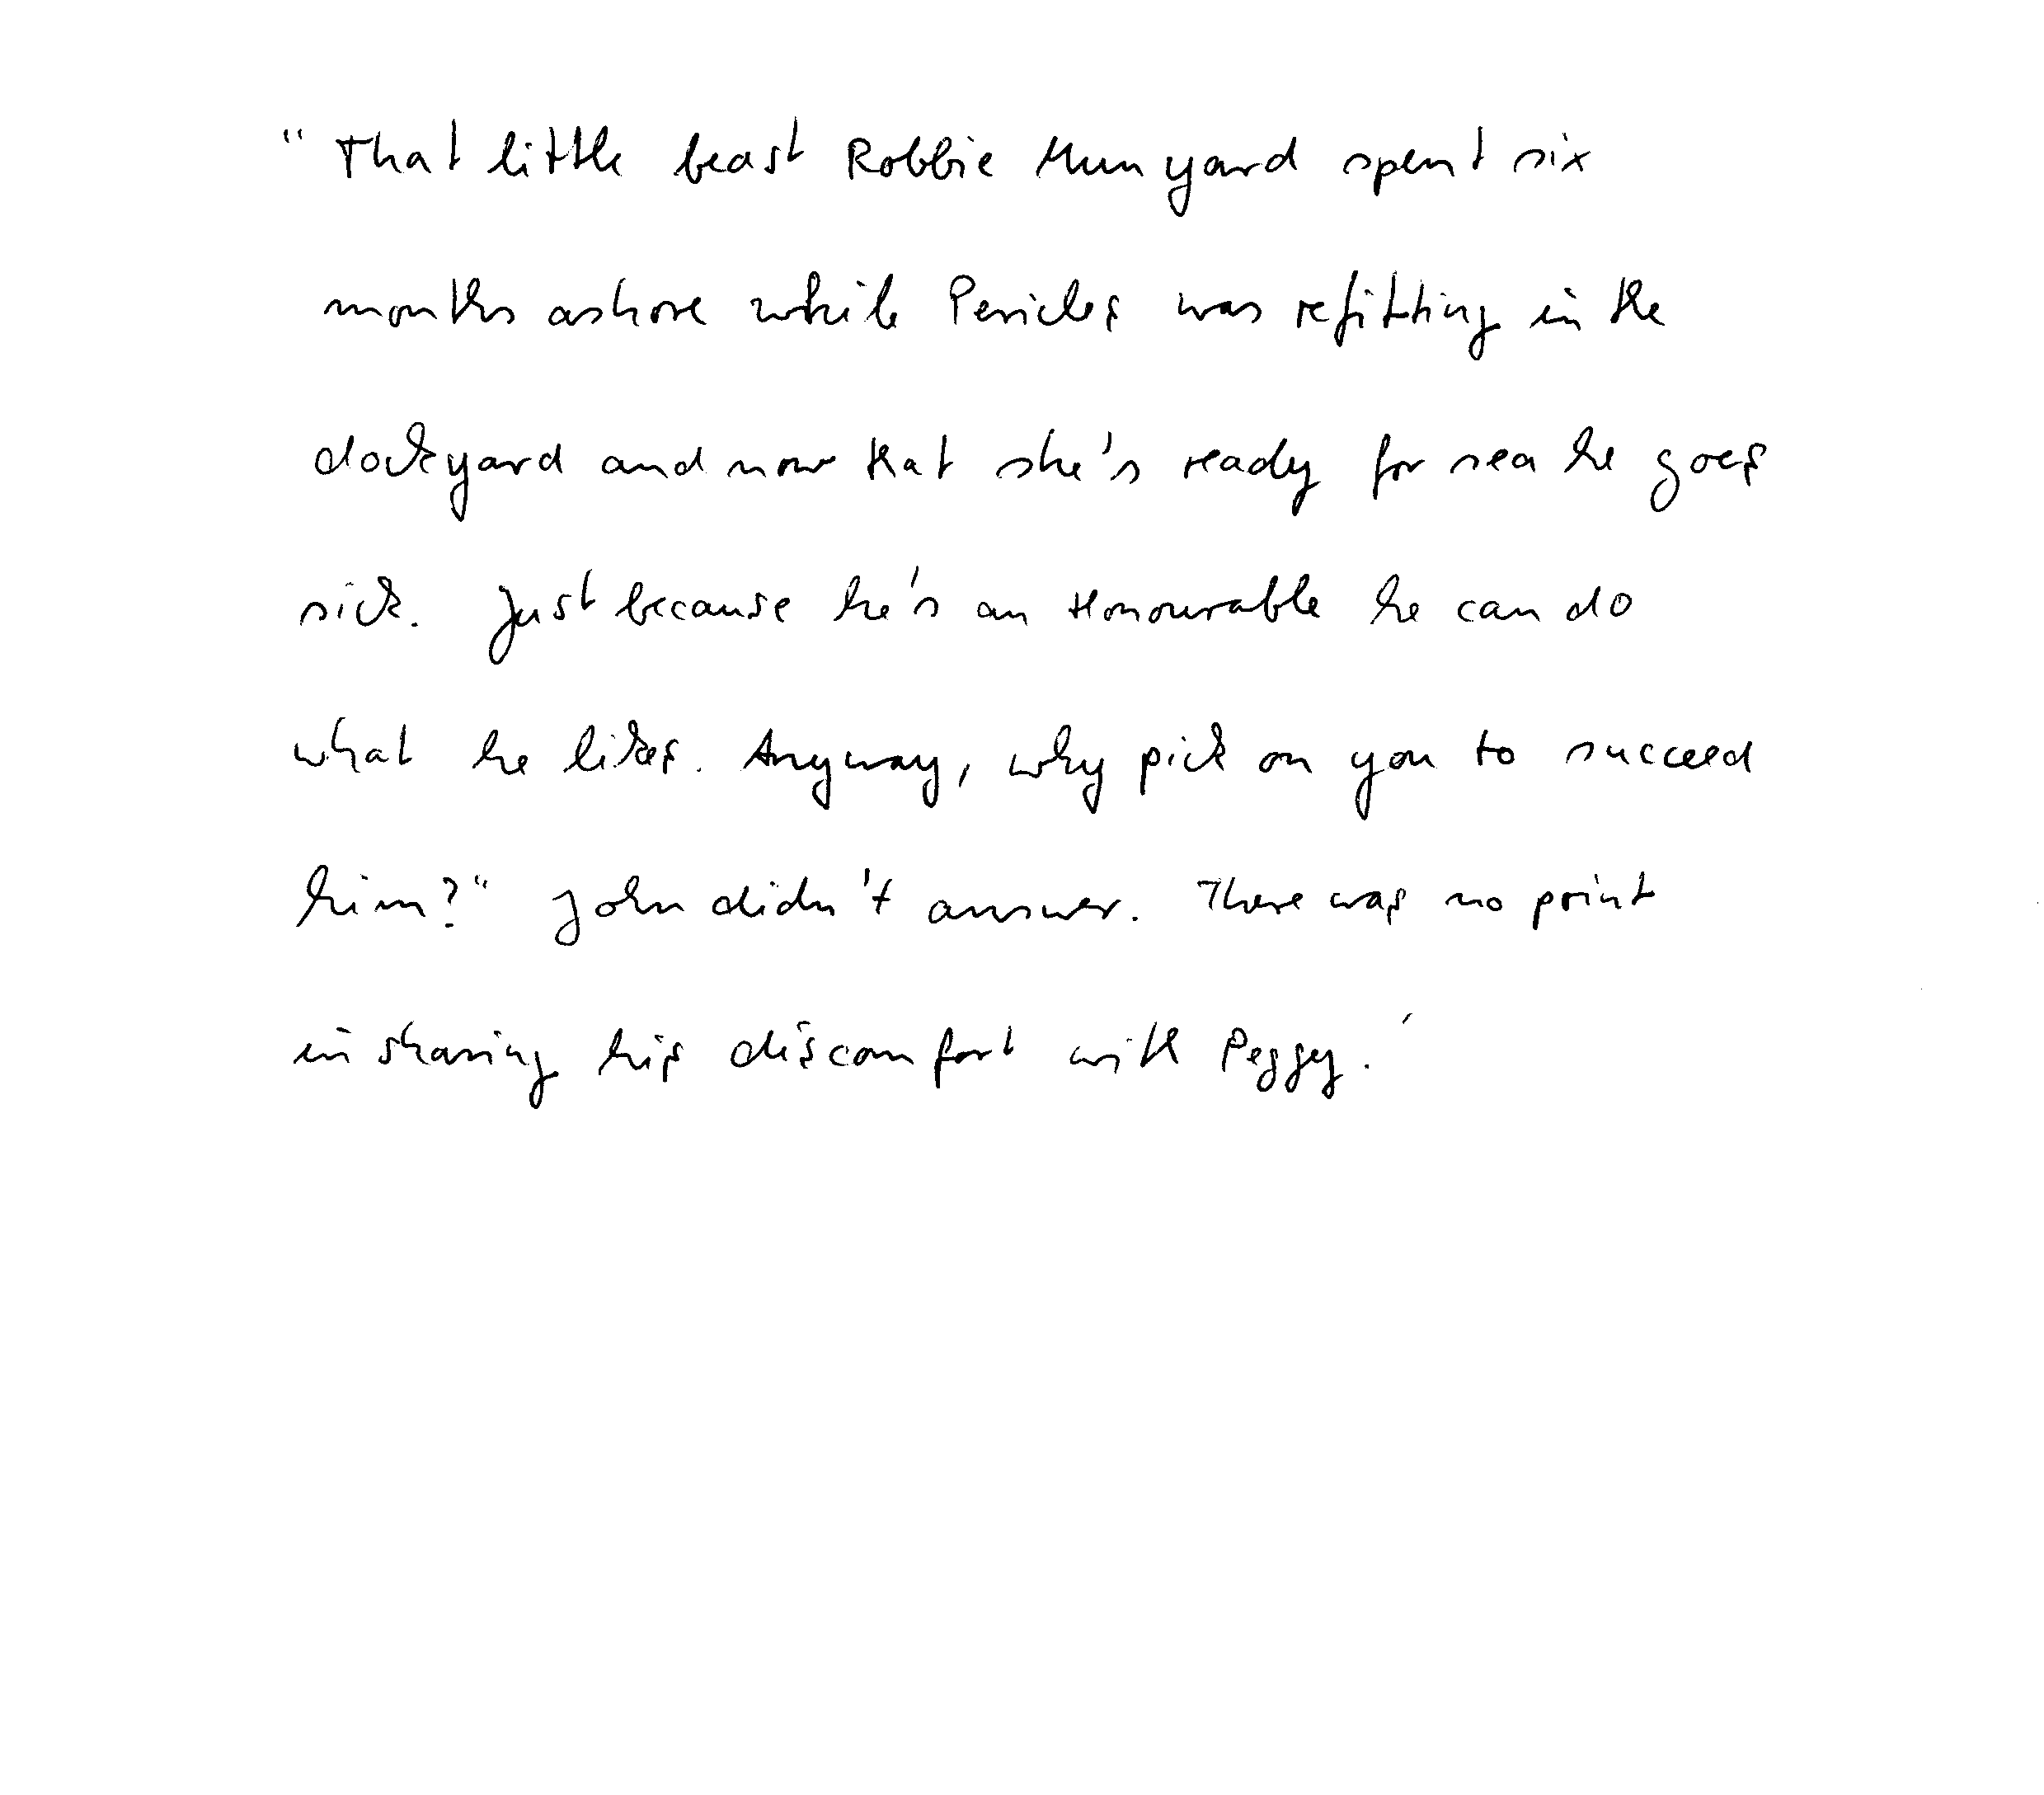 "That little beast Robbie Munyard spent six
months ashore while Pericles was refitting in the
dockyard and now that she's ready for sea he goes
sick. Just because he's an Honourable he can do
what he likes. Anyway, why pick on you to succeed
him?" John didn't answer. There was no point
in sharing his discomfort with Peggy.'